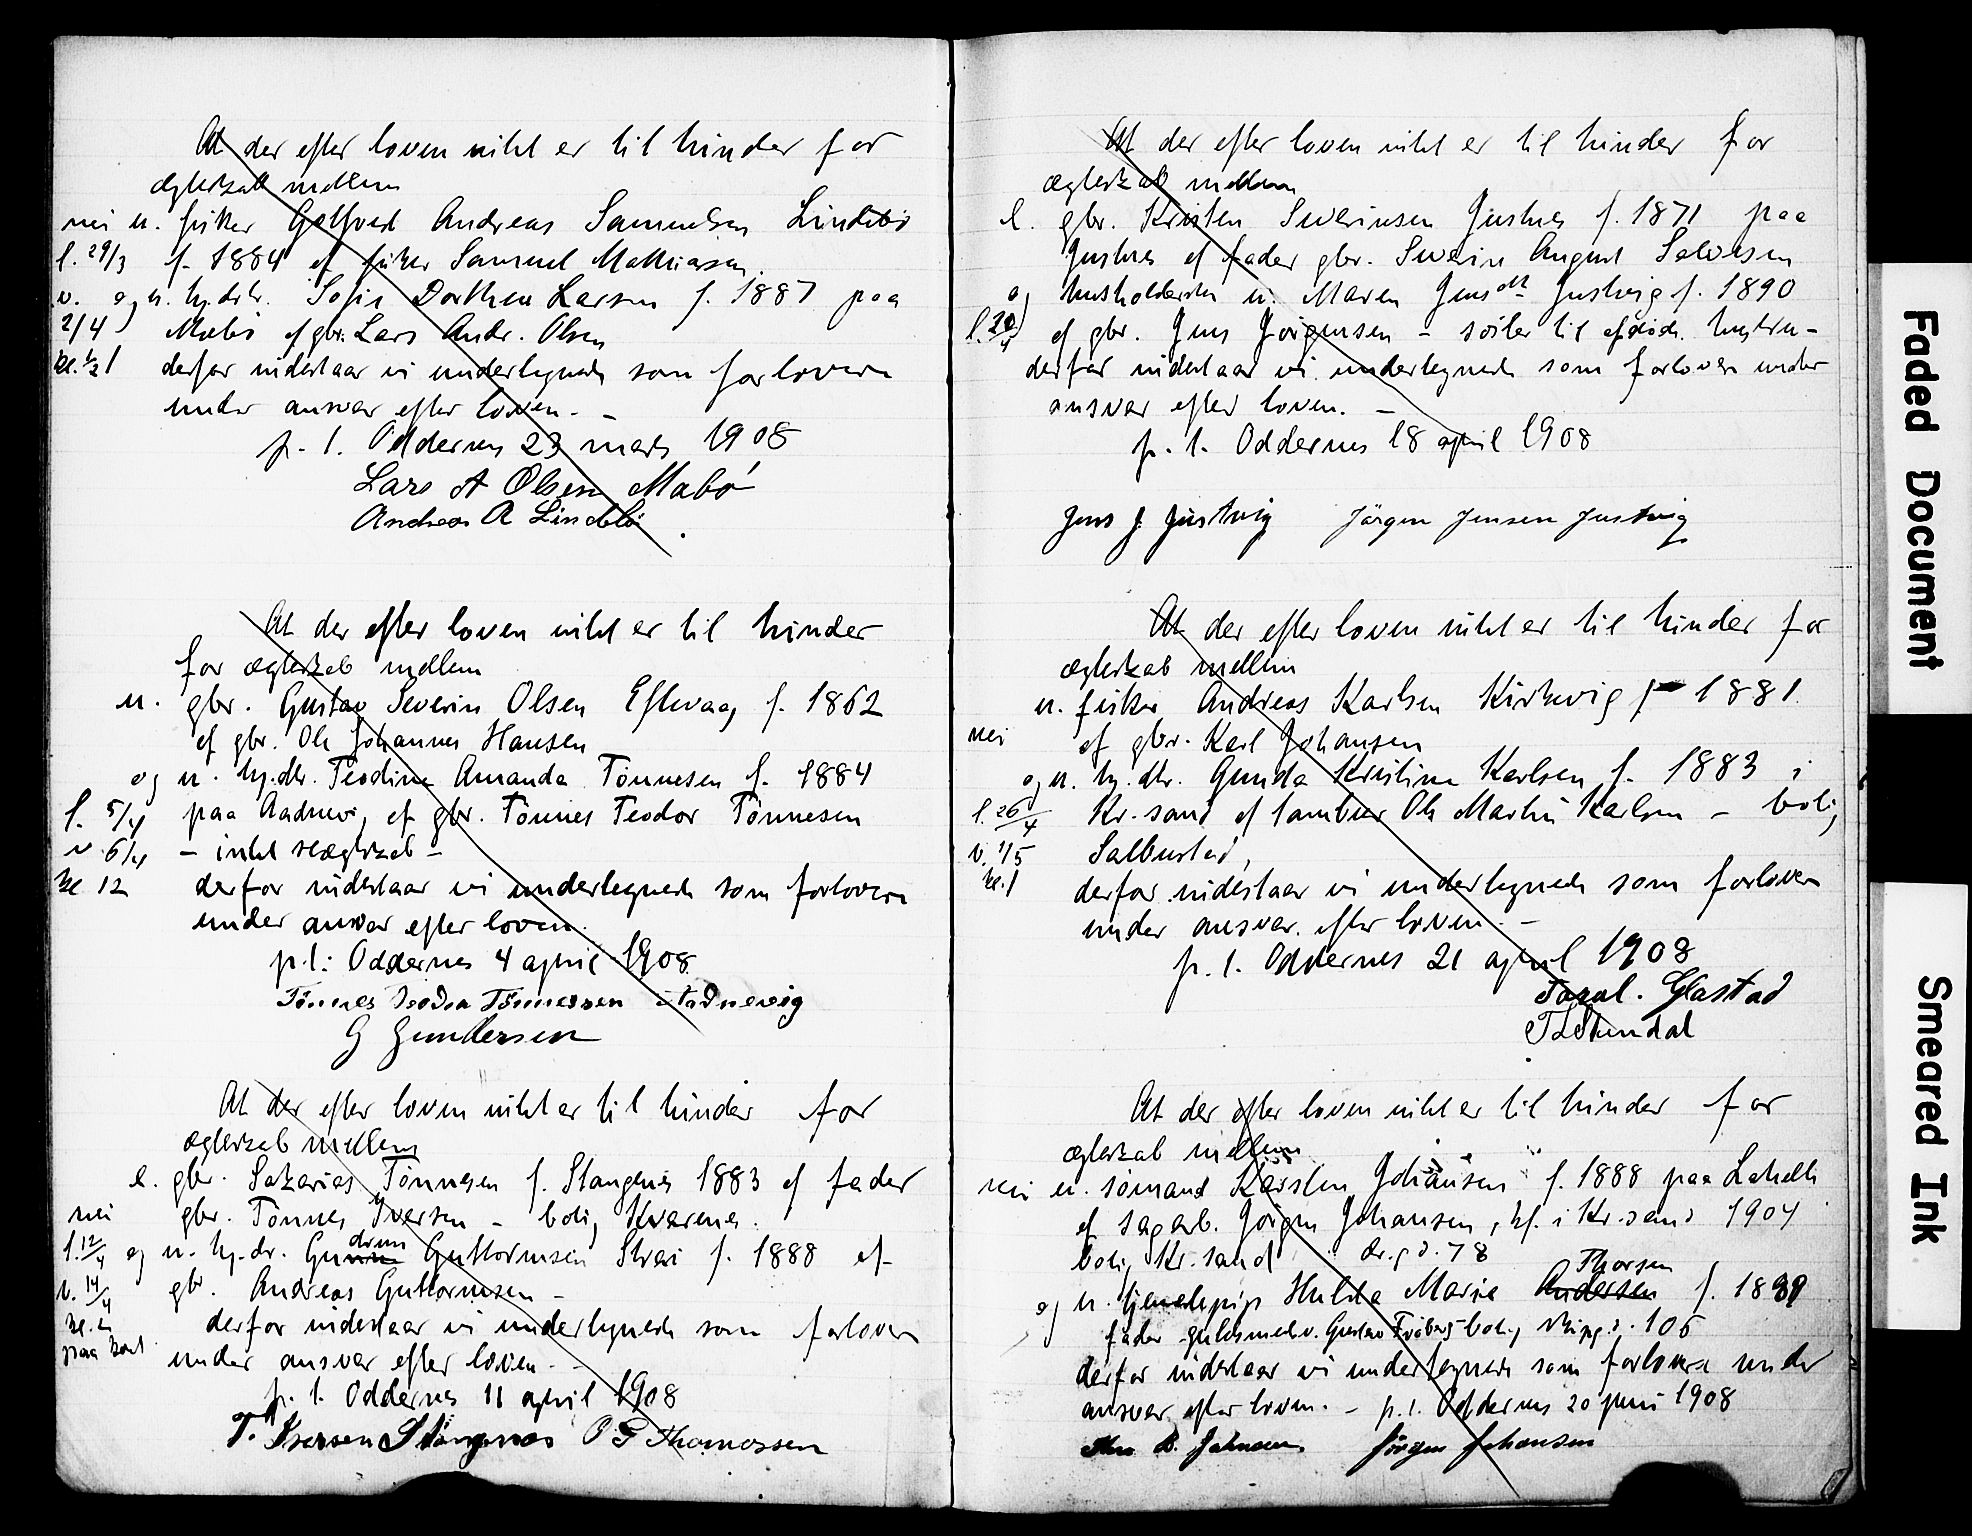 At der efter loven intet er til hinder for
ægteskab mellem
nei u. fisker Gotfred Andreas Samuelsen Lindebö
l. 29/3 f. 1884 af fisker Samuel Mathiasen.
v. og u. hj.dtr. Sofie Dorthea Larsen f. 1887 paa
2/4 Mæbö af gbr. Lars Andr. Olsen
kl. ½ 1 derfor indestaar vi undertegnede som forlovere
under ansvar efter loven. -
p. t. Oddernes 23 mars 1908
Lars A Olsen Mæbö
Andreas A Lindebö
At der efter loven intet er til hinder
for ægteskab mellem
u. gbr. Gustav Severin Olsen Eftevaag f. 1862
af gbr. Ole Johannes Hansen
og u. hj.dtr. Teodine Amanda Tönnesen f. 1884
l. 5/4 paa Aadnevi, af gbr. Tönnes Teodor Tönnesen
v. 6/4 - intet slægtskab -
kl 12 derfor indestaar vi undertegnede som forlovere
under ansvar efter loven.
p.t. Oddernes 4 april 1908
Tönnes Teodor Tönnessen Aadnevig
G Gundersen
At der efter loven intet er til hinder for
ægteskab mellem
e. gbr. Sakarias Tönnesen f. Stangenes 1883 af fader
nei gbr. Tönnes Iversen - bolig Kvarenes.
l. 12/4 og u. hj.dr. Gudrun Guttormsen Strai f. 1888 af
v. 14/4 gbr. Andreas Guttormsen -
kl. 2 derfor indestaar vi undertegnede som forlovere
paa kont. under ansvar efter loven. -
p. t. Oddernes 11 april 1908
T. Iversen Stangenes O G Thomassen
At der efter loven intet er til hinder for
ægteskab mellem
e. gbr. Kristen Severinsen Justnes f. 1871 paa
Justnes af fader gbr. Severin August Salvesen
og husholderske u. Maren Jensdtr Justvig f. 1890
l. 20/4 af gbr. Jens Jörgensen - söster til afdöd. hustru -
derfor indestaar vi undertegnede som forlovere under
ansvar efter loven. -
p. t. Oddernes 18 april 1908
Jens J. Justvig Jörgen Jensen Justvig
At der efter loven intet er til hinder for
ægteskab mellem
u. fisker Andreas Karlsen Kirkevig f 1881.
nei af gbr. Karl Johansen
og u. hj. dtr. Gunda Kristine Karlsen f. 1883 i
l. 26/4 Kr.sand af tambur Ole Martin Karlsen - bolig
v. 1/5 Salbustad,
kl. 1 derfor indestaar vi undertegnede som forlovere
under ansvar. efter loven. -
p. t. Oddernes 21 april 1908
Taral. Glastad
T Stendal
At der efter loven intet er til hinder for
ægteskab mellem
nei u. sömand Karsten Johansen f. 1888 paa Lahelle
af sagarb. Jörgen Johansen, kf. i Kr.sand 1904
bolig Kr.sand dr.gd. 78
Thorsen
og u. tjenestepige Hulda Marie Andersen f. 1889
fader guldsmedsv. Gustav Fröberg bolig Skipg. 106
derfor indestaar vi undertegnede som forlovere under
ansvar efter loven. - p. t. Oddernes 20 juni 1908
B. Johnsen Jörgen Johansen
Faded Document
Smeared Ink